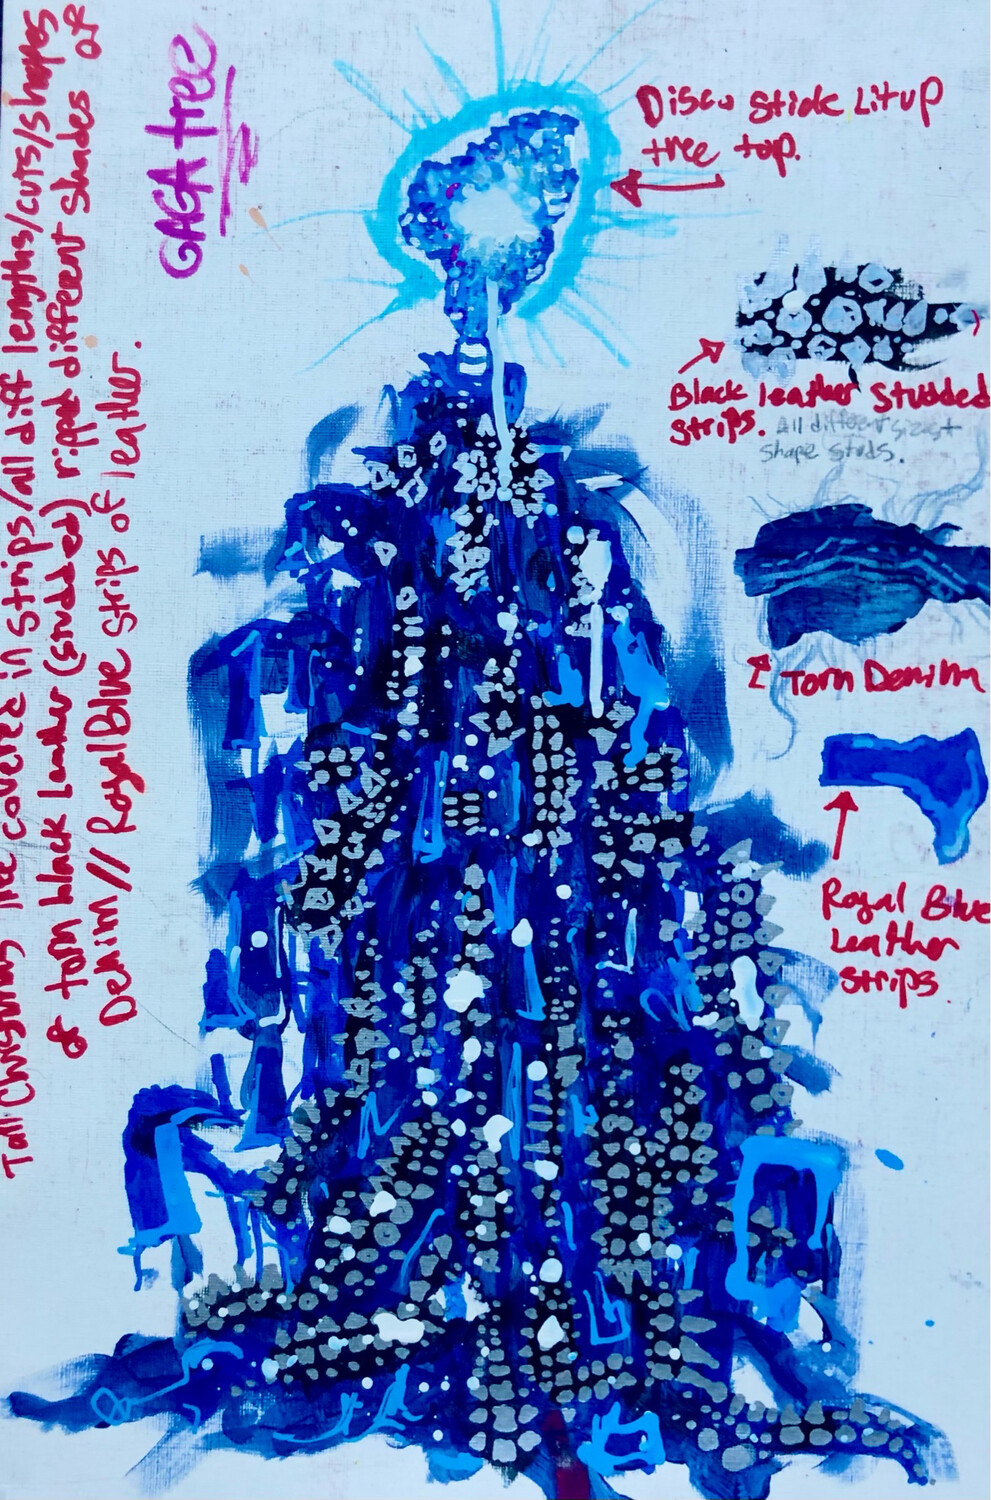 GAGA tree
Disco stick Lit up
tree top.
Black leather studded
strips.
All different sizes +
shape studs.
Torn Denim
Royal Blue
Leather
strips
Tall Christmas tree covered in strips/all diff lengths/cuts/shapes
of torn black Leather (studded) ripped different shades of
Denim // Royal Blue strips of leather.